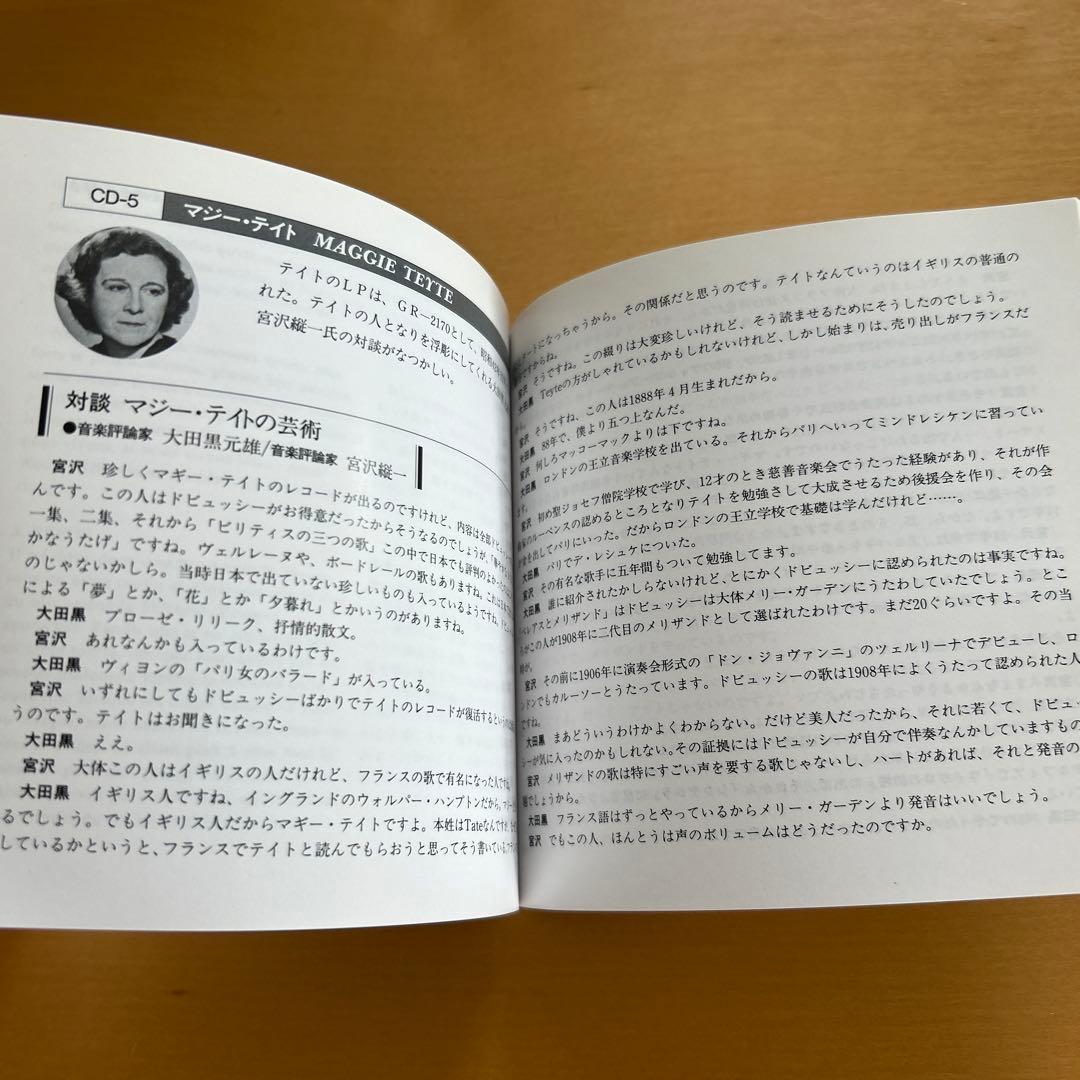 CD-5 マジー・テイト MAGGIE TEYTE
テイトのLPは、GR—2170として、昭和
れた。テイトの人となりを浮彫にしてくれる
宮沢縦一氏の対談がなつかしい。
対談 マジー・テイトの芸術
●音楽評論家 大田黒元雄/音楽評論家 宮沢縦一
宮沢 珍しくマギー・テイトのレコードが出るのですけれど、内容は全部ドビュッシー
んです。この人はドビュッシーがお得意だったからそうなるのでしょうが、
一集、二集、それから「ビリティスの三つの歌」この中で日本でも評判のよかった
かなうたげ」ですね。ヴェルレーヌや、ボードレールの歌もありますね。これは
のじゃないかしら。当時日本で出ていない珍しいものも入っているようですね。
による「夢」とか、「花」とか「夕暮れ」とかいうのがありますね。
大田黒 プローゼ・リリーク、抒情的散文。
宮沢 あれなんかも入っているわけです。
大田黒 ヴィヨンの「パリ女のバラード」が入っている。
宮沢 いずれにしてもドビュッシーばかりでテイトのレコードが復活するというのは
うのです。テイトはお聞きになった。
大田黒 ええ。
宮沢 大体この人はイギリスの人だけれど、フランスの歌で有名になった人ですね。
大田黒 イギリス人ですね、イングランドのウォルパー・ハンプトンだから。マギー
るでしょう。でもイギリス人だからマギー・テイトですよ。本姓はTateなんですが、
しているかというと、フランスでテイトと読んでもらおうと思ってそう書いている。フラン
ートになっちゃうから。その関係だと思うのです。テイトなんていうのはイギリスの普通の
ですからね。
宮沢 そうですね。この綴りは大変珍しいけれど、そう読ませるためにそうしたのでしょう。
大田黒 Teyteの方がしゃれているかもしれないけれど、しかし始まりは、売り出しがフランスだ
宮沢 そうですね、この人は1888年4月生まれだから。
大田黒 88年で、僕より五つ上なんだ。
宮沢 何しろマッコーマックよりは下ですね。
大田黒 ロンドンの王立音楽学校を出ている。それからパリへいってミンドレシケンに習ってい
ます。
宮沢 初め聖ジョセフ僧院学校で学び、12才のとき慈善音楽会でうたった経験があり、それが作
のルーベンスの認めるところとなりテイトを勉強さして大成させるため後援会を作り、その会
を出してパリにいった。だからロンドンの王立学校で基礎は学んだけれど……。
大田黒 パリでデ・レシュケについた。
宮沢 その有名な歌手に五年間もついて勉強してます。
大田黒 誰に紹介されたかしらないけれど、とにかくドビュッシーに認められたのは事実ですね。
ペレアスとメリザンド」はドビュッシーは大体メリー・ガーデンにうたわしていたでしょう。とこ
がこの人が1908年に二代目のメリザンドとして選ばれたわけです。まだ20ぐらいですよ。その当
が。
宮沢 その前に1906年に演奏会形式の「ドン・ジョヴァンニ」のツェルリーナでデビューし、ロ
ンドンでもカルーソーとうたっています。ドビュッシーの歌は1908年によくうたって認められた人
ですね。
大田黒 まあどういうわけかよくわからない。だけど美人だったから、それに若くて、ドビュッ
シーが気に入ったのかもしれない。その証拠にはドビュッシーが自分で伴奏なんかしていますもの
宮沢 メリザンドの歌は特にすごい声を要する歌じゃないし、ハートがあれば、それと発音の
でしょうから。
大田黒 フランス語はずっとやっているからメリー・ガーデンより発音はいいでしょう。
宮沢 でもこの人、ほんとうは声のボリュームはどうだったのですか。